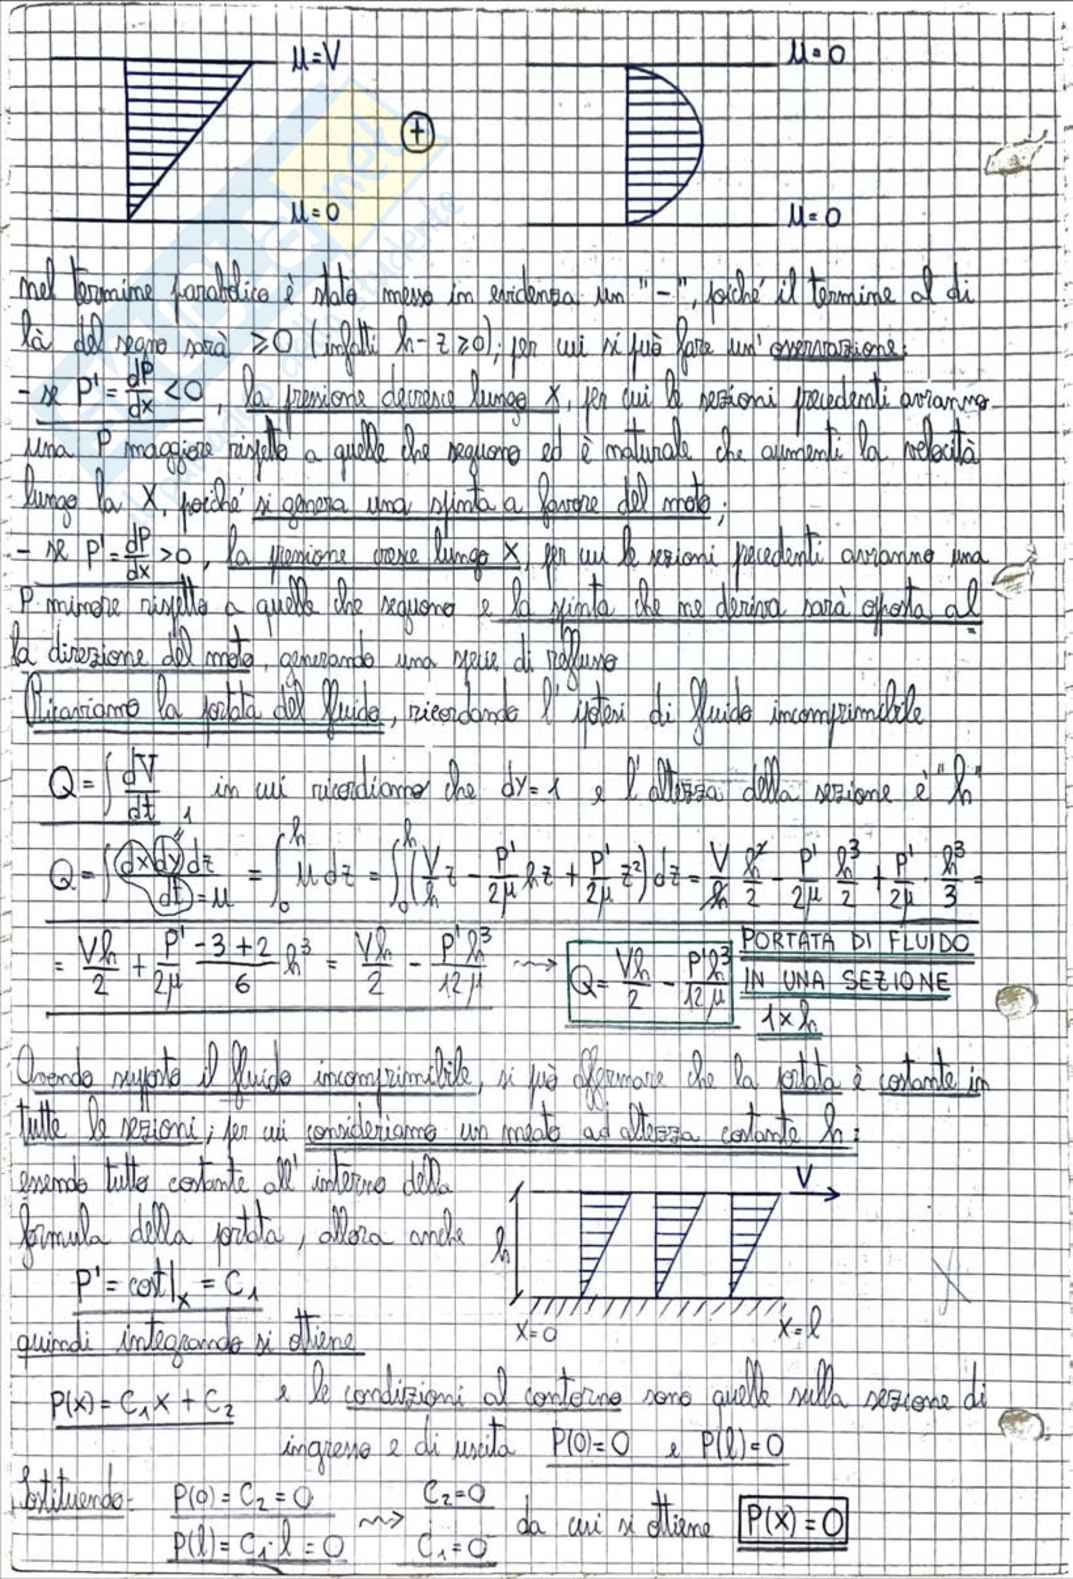 μ=V
μ=0
+
μ=0
μ=0
nel termine parabolico è stato messo in evidenza un "-", poiché il termine al di
là del segno sarà ≥0 (infatti h-z≥0); per cui si può fare un' osservazione:
- se P'=dP/dx<0, la pressione decresce lungo X, per cui le sezioni precedenti avranno
una P maggiore rispetto a quelle che seguono ed è naturale che aumenti la velocità
lungo la X, poiché si genera una spinta a favore del moto;
- se P'=dP/dx>0, la pressione cresce lungo X, per cui le sezioni precedenti avranno una
P minore rispetto a quelle che seguono e la spinta che ne deriva sarà opposta al
la direzione del moto, generando una specie di reflusso
Ricaviamo la portata del fluido, ricordando l'ipotesi di fluido incomprimibile
Q = ∫ dV/dt in cui ricordiamo che dy=1 e l'altezza della sezione è "h"
Q = ∫ dx dy dz/dt = ∫₀ʰ μ dz = ∫₀ʰ (V/h z - P'/2μ hz + P'/2μ z²) dz = V/h h²/2 - P'/2μ h³/2 + P'/2μ · h³/3 =
1
=μ
= Vh/2 + P'/2μ -3+2/6 h³ = Vh/2 - P'h³/12μ ⇝ Q= Vh/2 - P'h³/12μ PORTATA DI FLUIDO
IN UNA SEZIONE
1×h
Avendo supposto il fluido incomprimibile, si può affermare che la portata è costante in
tutte le sezioni; per cui consideriamo un meato ad altezza costante h:
essendo tutto costante all'interno della
formula della portata, allora anche
P'= cost|ₓ = C₁
quindi integrando si ottiene
V
h
X=0
X=l
P(x)= C₁x + C₂ e le condizioni al contorno sono quelle sulla sezione di
ingresso e di uscita P(0)=0 e P(l)=0
Sostituendo: P(0)=C₂=0 ⇝ C₂=0 da cui si ottiene P(x)=0
P(l)= C₁·l =0 C₁=0